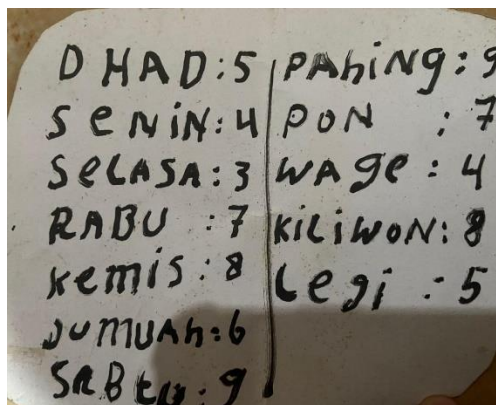 D HAD:5
SeNiN:4
SeLASA:3
RABU :7
Kemis:8
JUMUAh:6
SABtu:9
PAhiNg:9
PON :7
WAge :4
KiLiWON:8
Legi :5